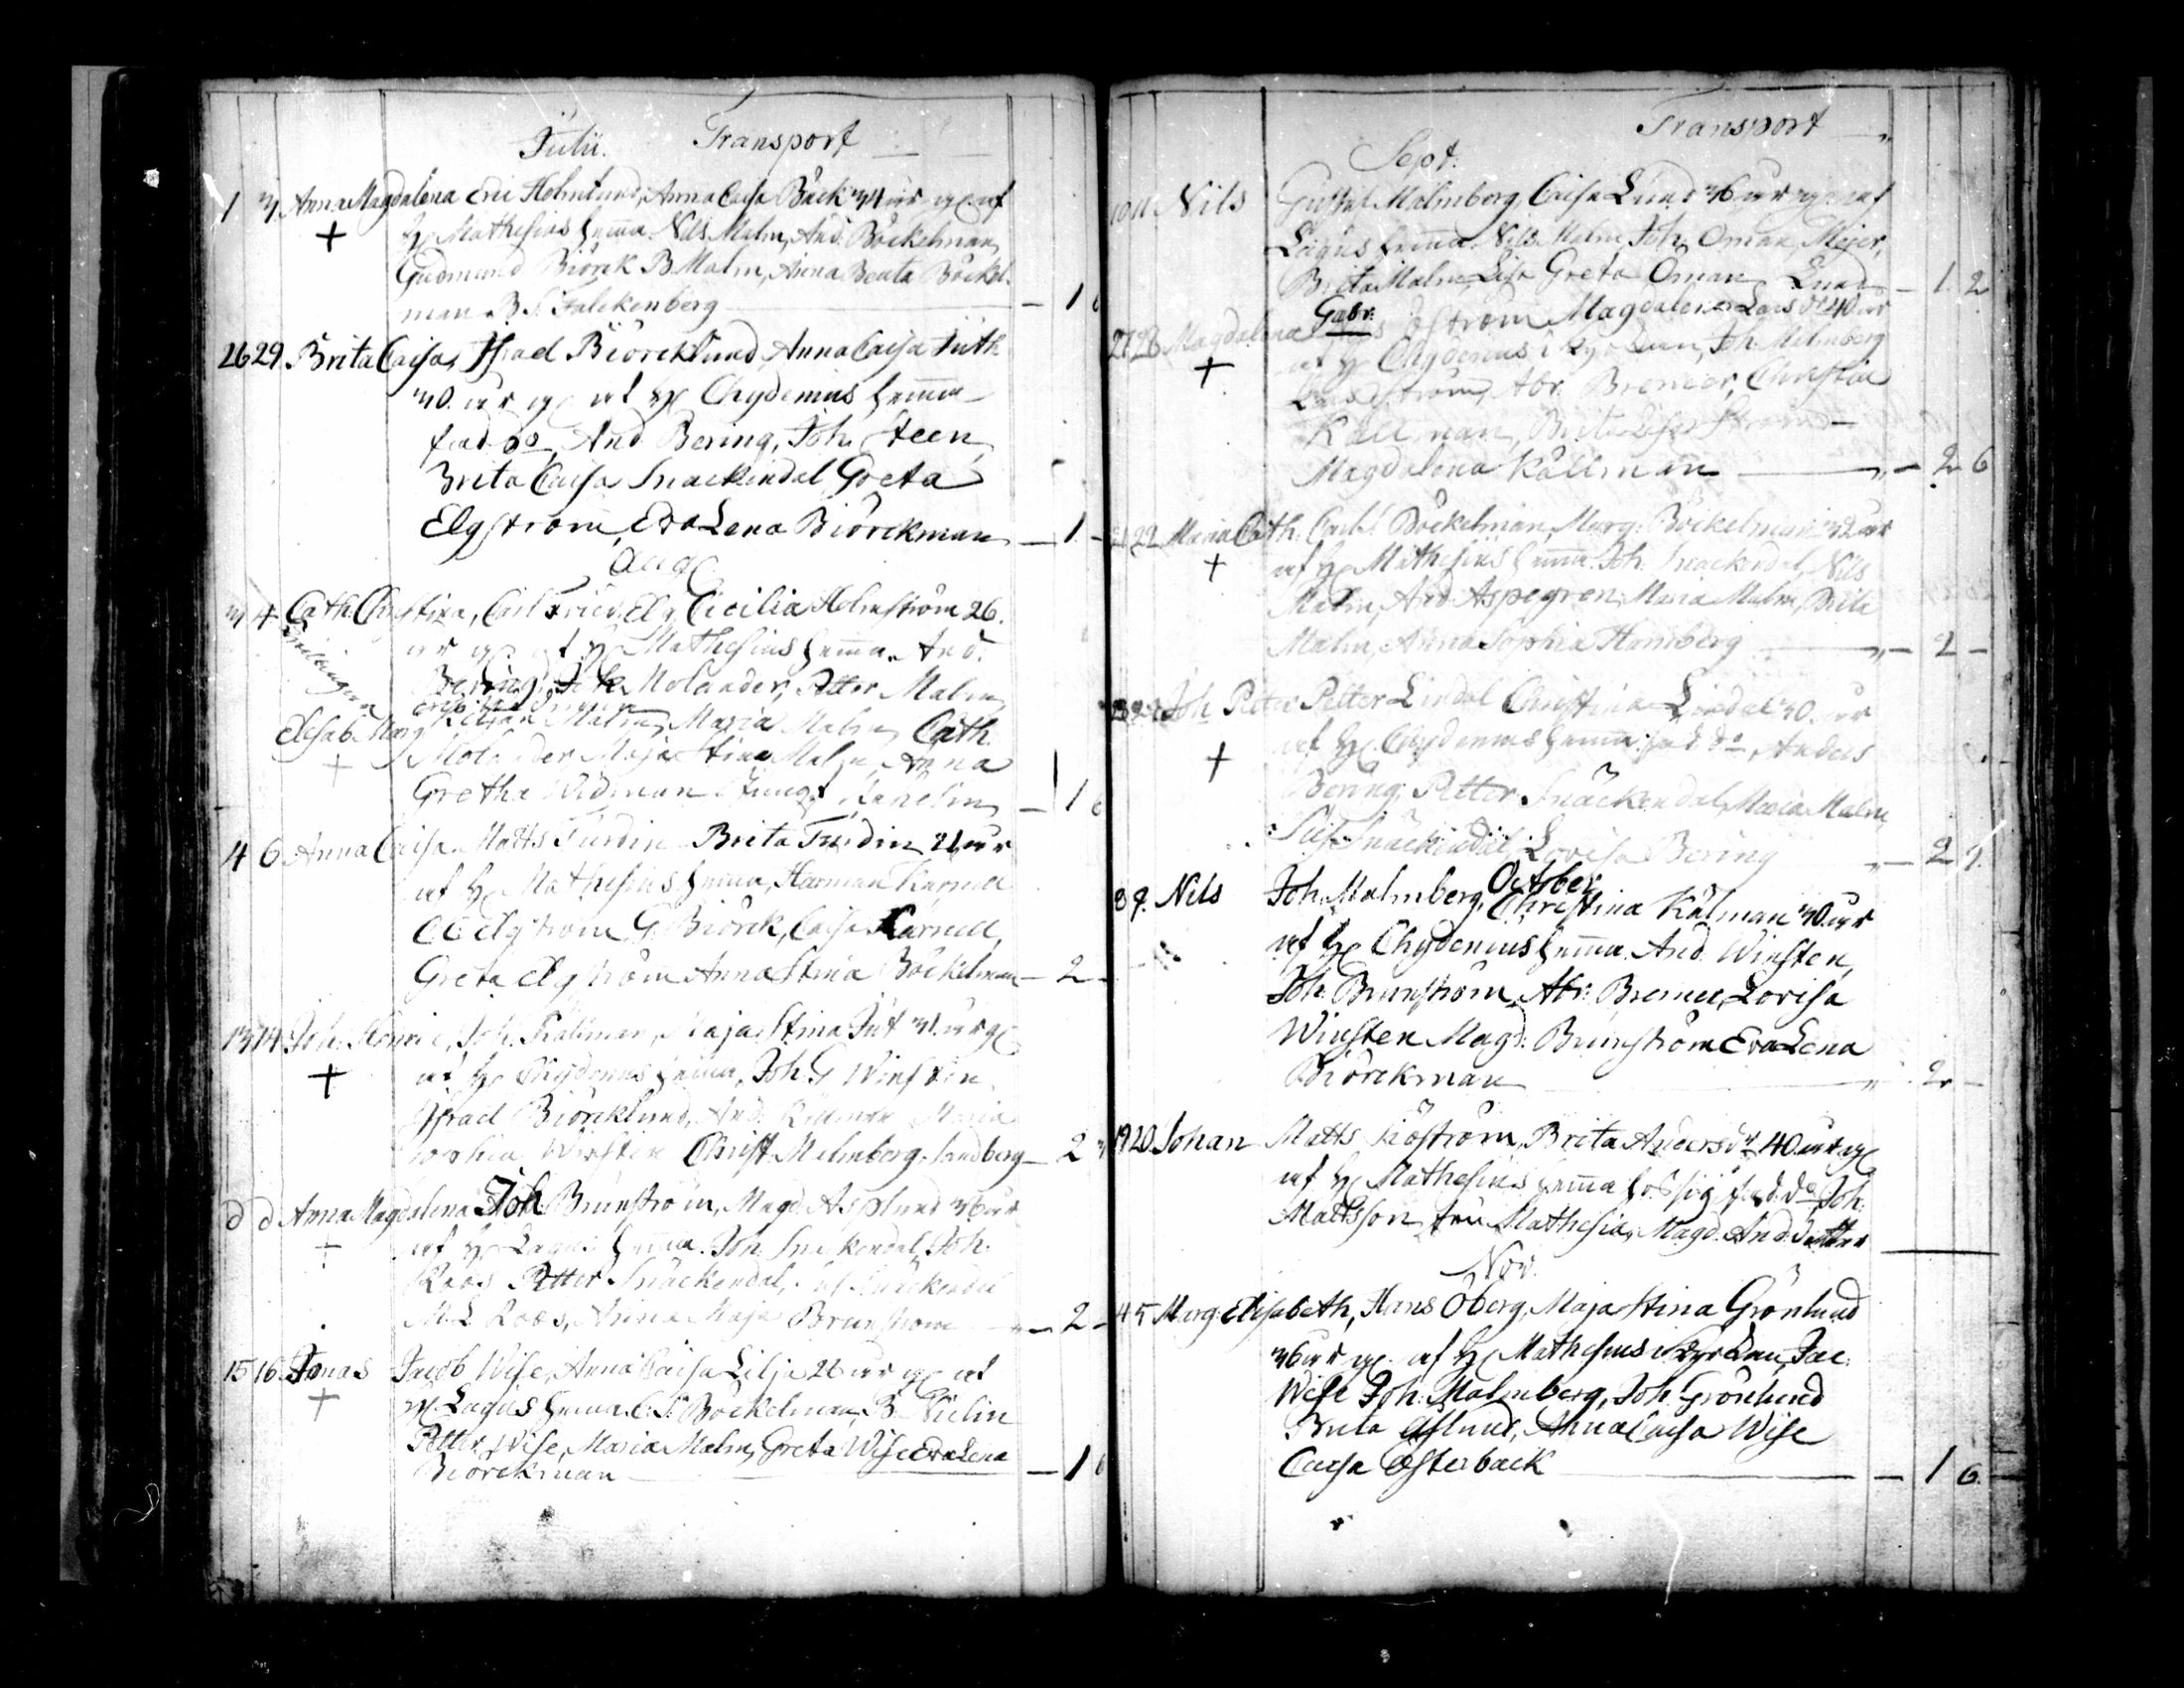 Julii. Transport
1 3 Anna Magdalena Eric Holmlund, Anna Caisa Bäck 34 år g af
H Mathesius hemma. Nils Malm, And. Böckelman,
Gudmund Biörck B Malm, Anna Beata Böckel-
man B. S. Falckenberg — 1 6
26 29 Brita Caisa, Israel Biörcklund, Anna Caisa Juth
30. år g af H Chydenius hemma
fad do And Bering, Joh. Steen,
Brita Caisa Snäckendal Greta
Elgström, Eva Lena Biörckman — 1 -
Aug
3 4 Cath. Christina, Carl Fried. Elg Cicilia Holmström 26.
år g af H Mathesius hemma. And.
Tvillingar
Bering, Molander, Petter Malm,
Elisab. Marg Malm, Maria Malm, Cath.
Molander Maja Stina Malm, Anna
Gretha Widman Karelin — 1 6
4 6 Anna Caisa. Matts Turdin Brita Turdin 21 år
af H Mathesius hemma, Herman Karnell
Elgström G. Biörck, Caisa Karnell,
Greta Elgström Anna Stina Böckelman — 2 -
13 14 Joh. Henric, Joh. Källman, Maja Stina Jut 31. år g
af H Chydenius hemma, Joh. G Winsten
Israel Biörcklund, And. Källman Maria
Sophia Winsten Christ. Malmberg, Sandberg — 2
d d Anna Magdalena Joh Brunström, Magd. Asplund 36 år
af H Lagus hemma. Joh. Snäckendal, Joh.
Roos Petter Snäckendal,
M. L Roos, Anna Maja Brunström — 2 -
15 16 Jonas Jacob Wise, Anna Caisa Lilja 26 år g af
H Lagus hemma. C. S. Böckelman, B. Nielin
Petter Wise, Maria Malm, Greta Wise Eva Lena
Biörckman — 1 6
Transport
Sept.
10 11 Nils Gustaf Malmberg, Caisa Lund 36 år g af
Lagus hemma. Nils Malm, Joh. Öman, Meijer,
Brita Malm Lisa Greta Öman, Lund — 1. 2
Gabr.
27 28 Magdalena Öström Magdalena Larsdr 40 år
af H Chydenius i kyrckan, Joh. Malmberg
Abr. Bremer, Christin
Källman, Brita
Magdalena Källman — 2 6
21 22 Maria Cath. Carl Böckelman, Marg. Böckelman 32 år
af H Mathesius hemma. Joh. Snäckendal Nils
Malm, And Aspegren, Maria Malm, Brita
Malm, Anna Sophia Hamberg — 2 -
Joh Petter Petter Lindal Christina Lindal 30. år
af H. Chydenius hemma. fad do, Anders
Bering, Petter Snäckendal, Maria Malm,
Snäckendal Lovisa Bering — 2
October
8 9. Nils Joh. Malmberg, Christina Kälman 30. år
af H Chydenius hemma. And. Winsten,
Joh. Brunström, Abr. Bremer, Lovisa
Winsten Magd. Brunström Eva Lena
Biörckman — 2 -
19 20 Johan Matts Siöström, Brita Andersdr 40 år g
af H Mathesius hemma hos sig fad. do Joh.
Mattsson fru Mathesia, Magd. And.dotter —
Nov.
4 5 Marg. Elisabeth, Hans Öberg, Maja Stina Grönlund
36 år g. af H Mathesius i kyrckan, Jac.
Wise Joh. Malmberg, Joh. Grönlund
Brita Aslund, Anna Caisa Wise
Caisa Österback — 1 6.